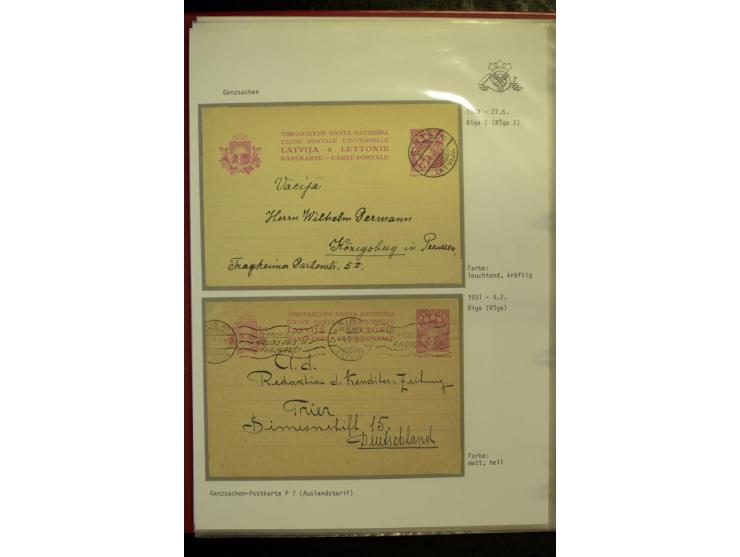 Ganzsachen
27.6.
Riga 2 (Rīga 2)
UNION POSTALE UNIVERSELLE
LATVIJA LETTONIE
PASTKARTE — CARTE POSTALE
LATVIJA
Vācija
Herrn Wilhelm Germann
Königsberg in Preussen
Tragheimer Gartenstr. 5 II.
Farbe:
leuchtend, kräftig
1931 - 4.2.
Riga (Rīga)
UNION POSTALE UNIVERSELLE
LATVIJA LETTONIE
CARTE POSTALE
A. d.
Redaktion d. Konditor-Zeitung
Trier
Simeonstift 15.
Deutschland
Farbe:
matt, hell
Ganzsachen-Postkarte P 7 (Auslandstarif)